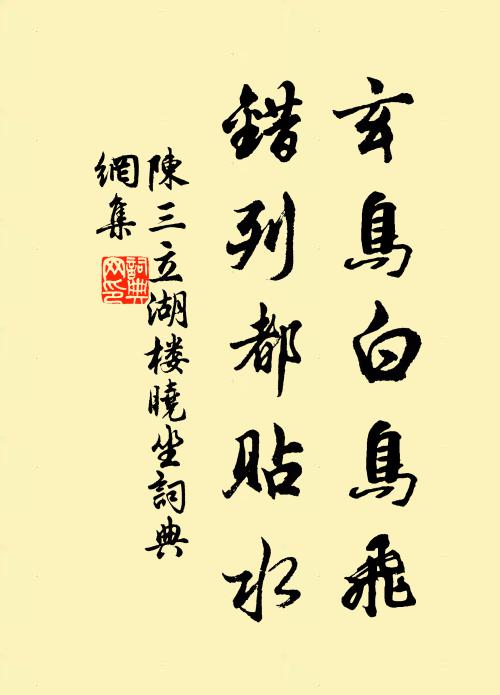 玄鳥白鳥飛
錯列都貼水
陳三立湖楼曉坐詞典
網集
詞典
网印